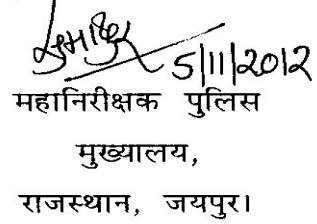 5/11/2012
महानिरीक्षक पुलिस
मुख्यालय,
राजस्थान, जयपुर।